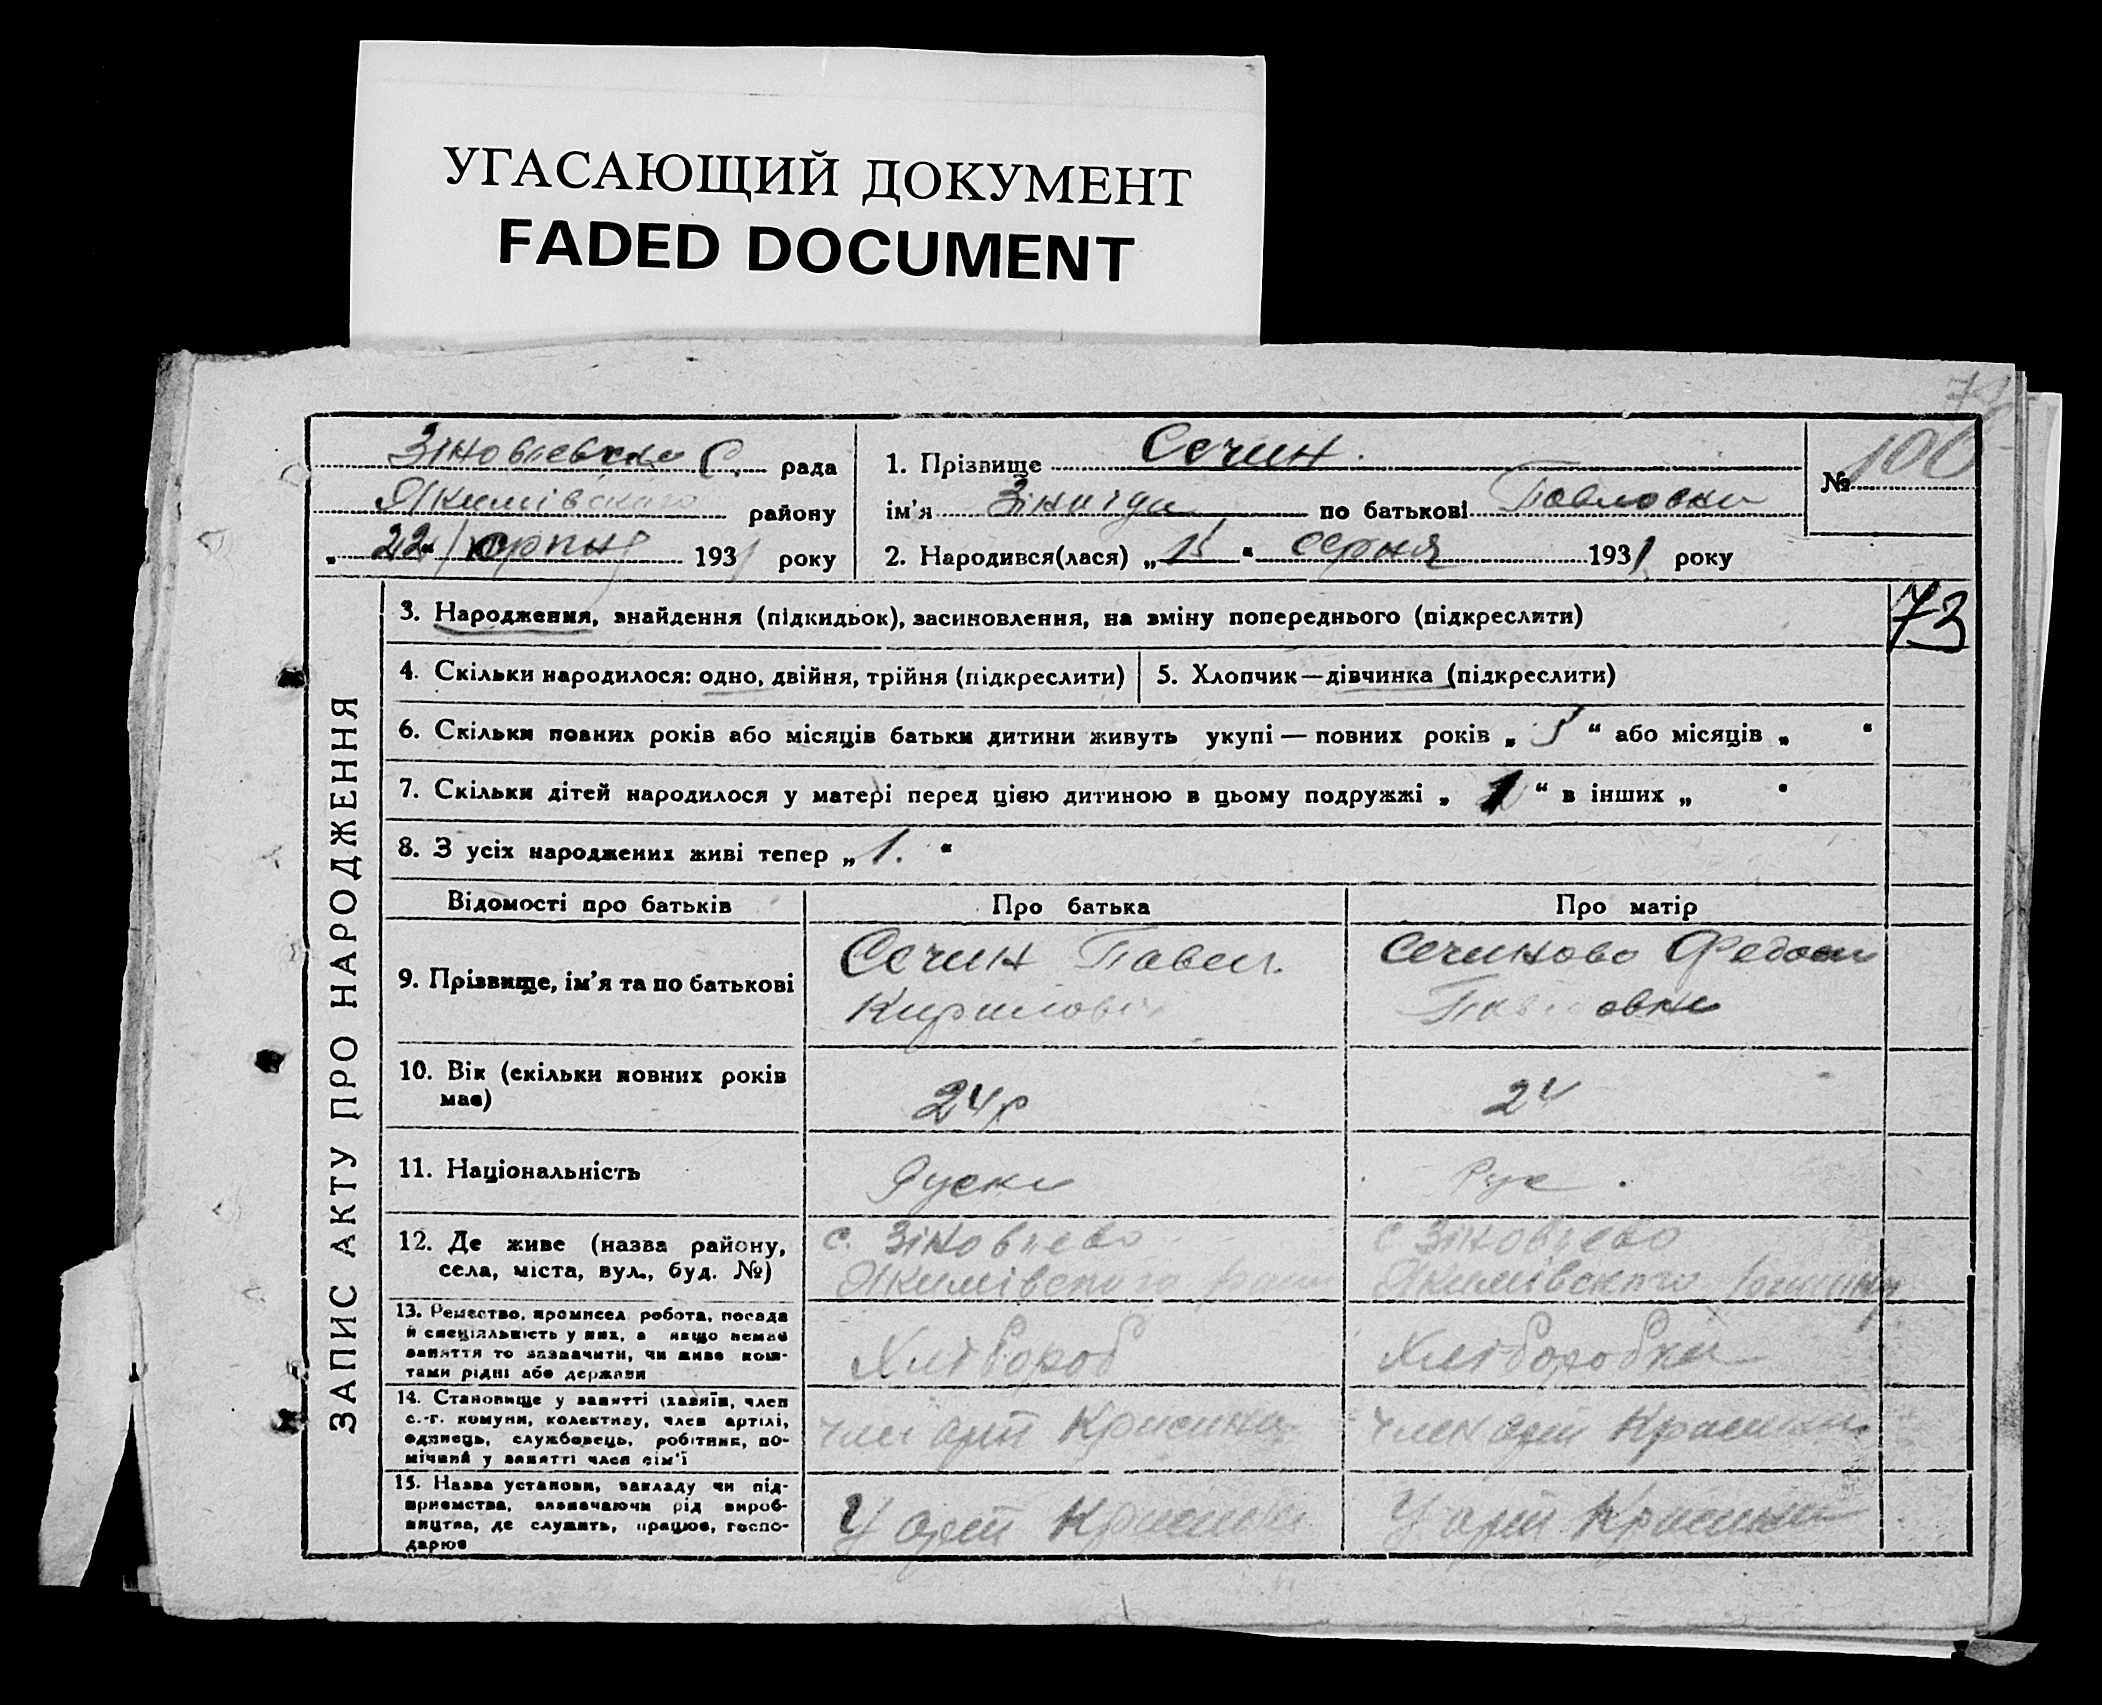 УГАСАЮЩИЙ ДОКУМЕНТ
FADED DOCUMENT
Зіновʼевска С. рада
Якимівского району
22 серпня 1931 року
1. Прізвище Сечин
ім'я Зінаіда по батькові Павловна
2. Народився(лася) „15“ серпня 1931 року
№ 100
73
ЗАПИС АКТУ ПРО НАРОДЖЕННЯ
3. Народження, знайдення (підкидьок), засиновлення, на зміну попереднього (підкреслити)
4. Скільки народилося: одно, двійня, трійня (підкреслити)
5. Хлопчик—дівчинка (підкреслити)
6. Скільки повних років або місяців батьки дитини живуть укупі — повних років „5“ або місяців „ “
7. Скільки дітей народилося у матері перед цією дитиною в цьому подружжі „1“ в інших „ “
8. З усіх народжених живі тепер „1.“
Відомості про батьків
Про батька
Про матір
9. Прізвище, ім'я та по батькові
Сечин Павел
Кирилович
Сечинова Федося
Павловна
10. Вік (скільки повних років
має)
24 р
24
11. Національність
Руски
Рус.
12. Де живе (назва району,
села, міста, вул., буд. №)
с. Зіновʼево
Якимівского
с Зіновʼево
Якимівского
13. Ремество, промисел робота, посада
й спеціяльність у них, а якщо немає
заняття то зазначити, чи живе кош-
тами рідні або держави
Хлібороб
Хліборобка
14. Становище у занятті (хазяїн, член
с.-г. комуни, колективу, член артілі,
одинець, службовець, робітник, по-
мічний у занятті член сім'ї
член арт
член арт
15. Назва установи, закладу чи під-
приємства, визначаючи рід вироб-
ництва, де служить, працює, госпо-
дарює
У арт
У арт